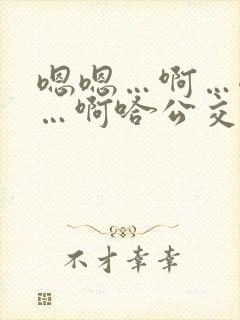 嗯嗯…啊…
…啊哈公交
不才幸幸